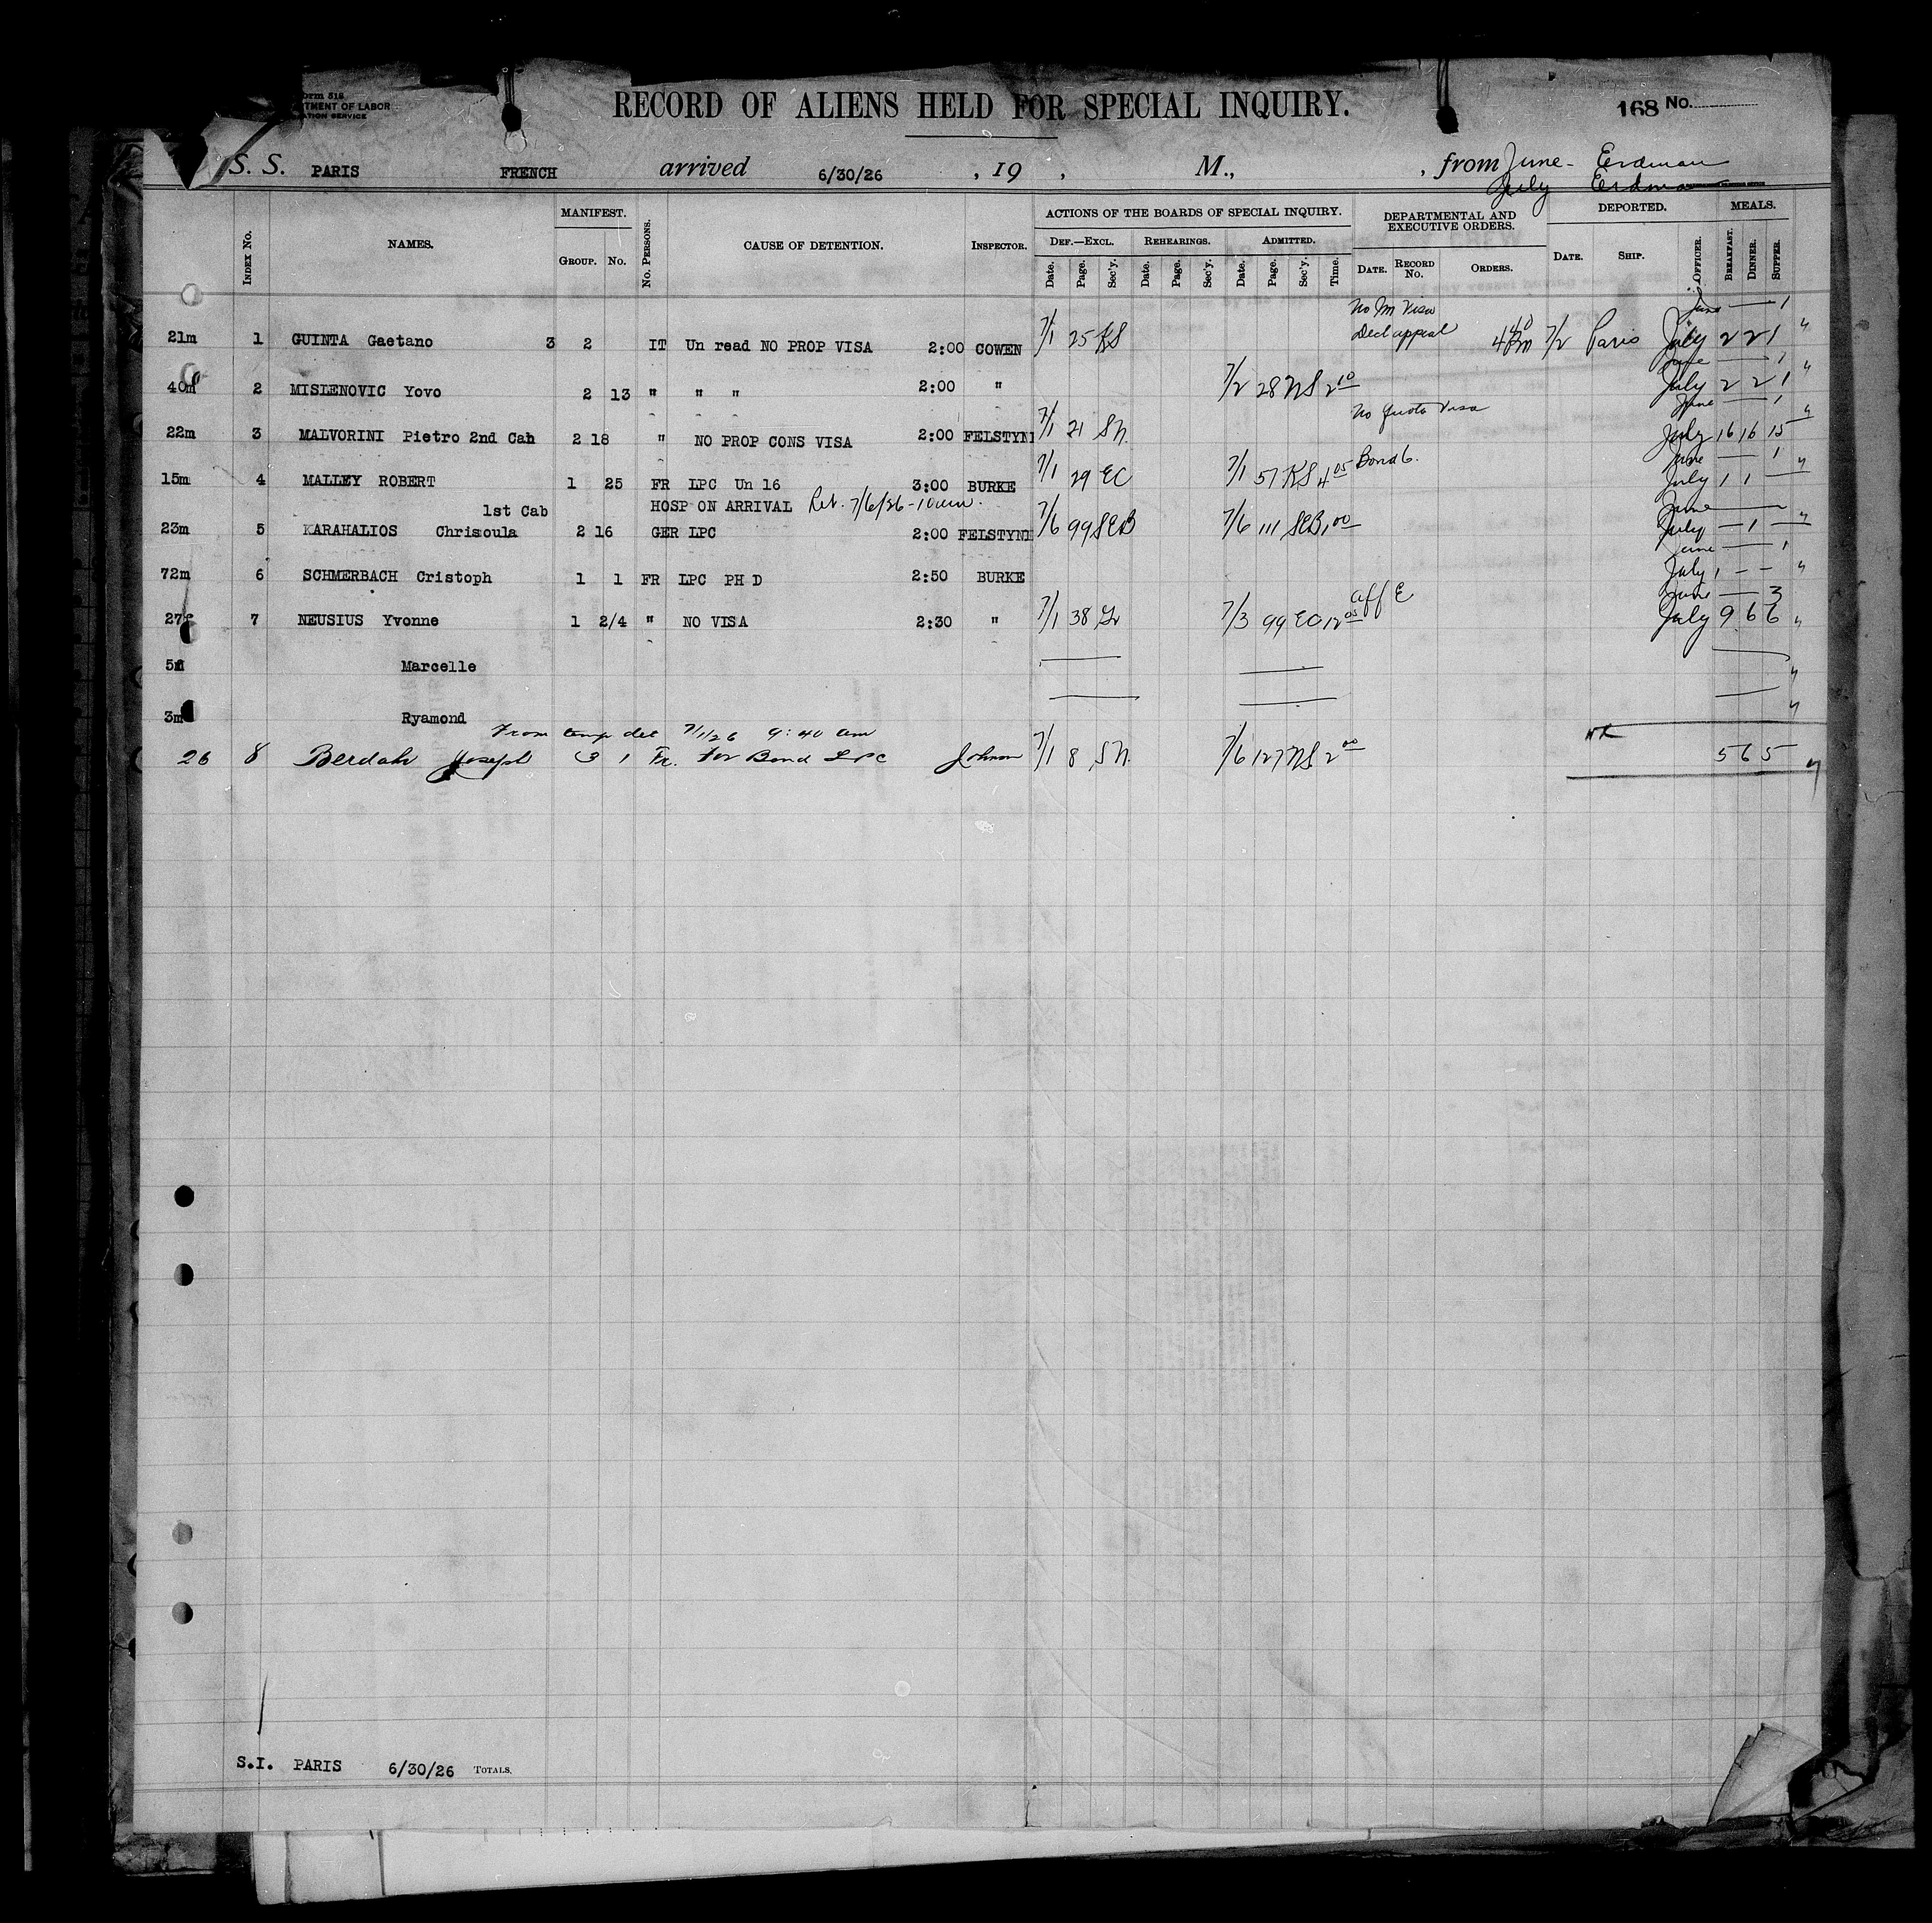 orm 518
TMENT OF LABOR
ATION SERVICE
RECORD OF ALIENS HELD FOR SPECIAL INQUIRY.
168 No.
S. S. PARIS FRENCH arrived 6/30/26 , 19 , M., , from June - Erdman
July Erdman
INDEX No. NAMES. MANIFEST. GROUP. No. No. PERSONS. CAUSE OF DETENTION. INSPECTOR. ACTIONS OF THE BOARDS OF SPECIAL INQUIRY. DEF.—EXCL. Date. Page. Sec'y. REHEARINGS. Date. Page. Sec'y. ADMITTED. Date. Page. Sec'y. Time. DEPARTMENTAL AND EXECUTIVE ORDERS. DATE. RECORD No. ORDERS. DEPORTED. DATE. SHIP. OFFICER. MEALS. BREAKFAST. DINNER. SUPPER.
No Visa June — 1
21m 1 GUINTA Gaetano 3 2 IT Un read NO PROP VISA 2:00 COWEN 7/1 25 KS Decl appeal 7/2 Paris July 2 2 1
June — 1
40m 2 MISLENOVIC Yovo 2 13 " " " 2:00 " 7/2 28 NS 2 10 July 2 2 1
No Quota Visa June — 1
22m 3 MALVORINI Pietro 2nd Cab 2 18 " NO PROP CONS VISA 2:00 FELSTYN 7/1 21 SN. July 16 16 15
June — 1
15m 4 MALLEY ROBERT 1 25 FR LPC Un 16 3:00 BURKE 7/1 29 EC 7/1 57 KS 4 05 Bond July 1 1 —
1st Cab HOSP ON ARRIVAL Ret. 7/6/26 - 10 am. June —
23m 5 KARAHALIOS Chrisoula 2 16 GER LPC 2:00 FELSTYN 7/6 99 SEB 7/6 111 SEB 1 00 July — 1 —
June — 1
72m 6 SCHMERBACH Cristoph 1 1 FR LPC PH D 2:50 BURKE July 1 — —
June — 3
27f 7 NEUSIUS Yvonne 1 2/4 " NO VISA 2:30 " 7/1 38 7/3 99 EC 12 05 aff E July 9 6 6
5f Marcelle
3m Ryamond
From temp det 7/1/26 9:40 am
26 8 Berdah Joseph 3 1 Fr. for Bond LPC Johnson 7/1 8 SN. 7/6 127 NS 2 00 5 6 5
S.I. PARIS 6/30/26 TOTALS.